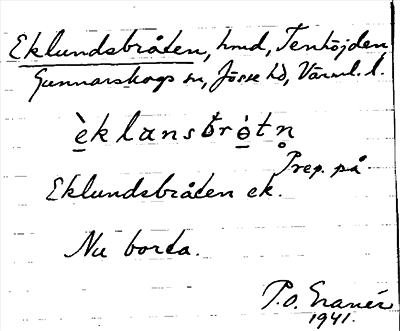 Eklundsbråten, hmd, Tenhöjden,
Gunnarskogs sn, Jösse hd, Värml. l.
èklansbrò̱tn̥
Prep. på.
Eklundsbråten ek.
Nu borta.
P.O. Granér
1941.